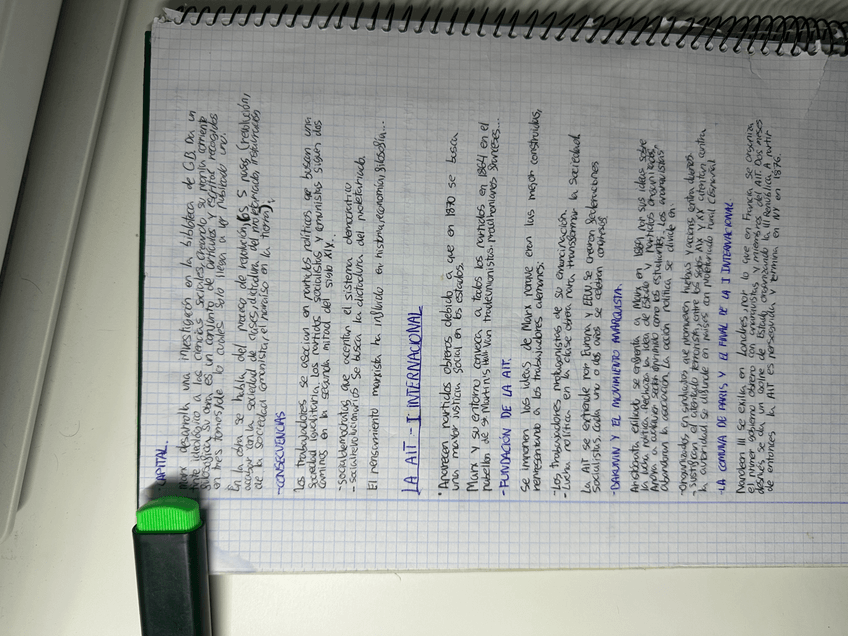 -CAPITAL.
Marx desarrolla una investigación en la biblioteca de G.B. Da un
tinte ideológico a las ciencias sociales, creando su propia corriente
filosófica. Su obra es un conjunto de artículos y escritos recogidos
en tres tomos, de lo cuales solo llega a ver publicado uno.
En la obra se habla del proceso de revolución, 5 pasos (revolución,
acabar con la sociedad de clases, dictadura del proletariado, instauración
de la sociedad comunista, el paraíso en la tierra).
-CONSECUENCIAS
Los trabajadores se asocian en partidos políticos que buscan una
sociedad igualitaria. Los partidos socialistas y comunistas siguen dos
caminos en la segunda mitad del siglo XIX...
-Socialdemócratas, que aceptan el sistema democrático
-socialrevolucionarios se busca la dictadura del proletariado.
El pensamiento marxista ha influido en historia, economía, filosofía...
LA AIT - I INTERNACIONAL
Aparecen partidos obreros debido a que en 1870 se busca
una mayor justicia social en los estados.
Marx y su entorno convoca a todos los partidos en 1864 en el
pabellon de St Martin's Hall. Van tradeunionistas, proudhonianos franceses...
-FUNDACIÓN DE LA AIT.
Se imponen las ideas de Marx porque eran las mejor construidas,
representando a los trabajadores alemanes:
-Los trabajadores protagonistas de su emancipación.
-Lucha política en la clase obrera para transformar la sociedad.
La AIT se extiende por Europa y EEUU. Se crearon federaciones
socialistas. Cada uno o dos años se celebran congresos
-BAKUNIN Y EL MOVIMIENTO ANARQUISTA.
Aristócrata exiliado, se enfrenta a Marx en 1867 por sus ideas sobre
la lucha política. Rechaza la idea de Estado y partidos organizados.
Apoya a cualquier sector oprimido como los estudiantes. Los anarquistas
abandonan la asociación. La acción política se divide en:
-Organizados en sindicatos que promueven huelgas y acciones entre obreros.
-Justifican el atentado terrorista, entre los siglos XIX y XX atentan contra
la autoridad se difunde en países con proletariado rural
-LA COMUNA DE PARIS Y EL FINAL DE LA I INTERNACIONAL
Napoleon III se exilia en Londres, por lo que en Francia, se organiza
el primer gobierno obrero con anarquistas y miembros del AIT. Dos meses
después se da un golpe de Estado, organizando la III República. A partir
de entonces la AIT es perseguida y termina en NY en 1876.